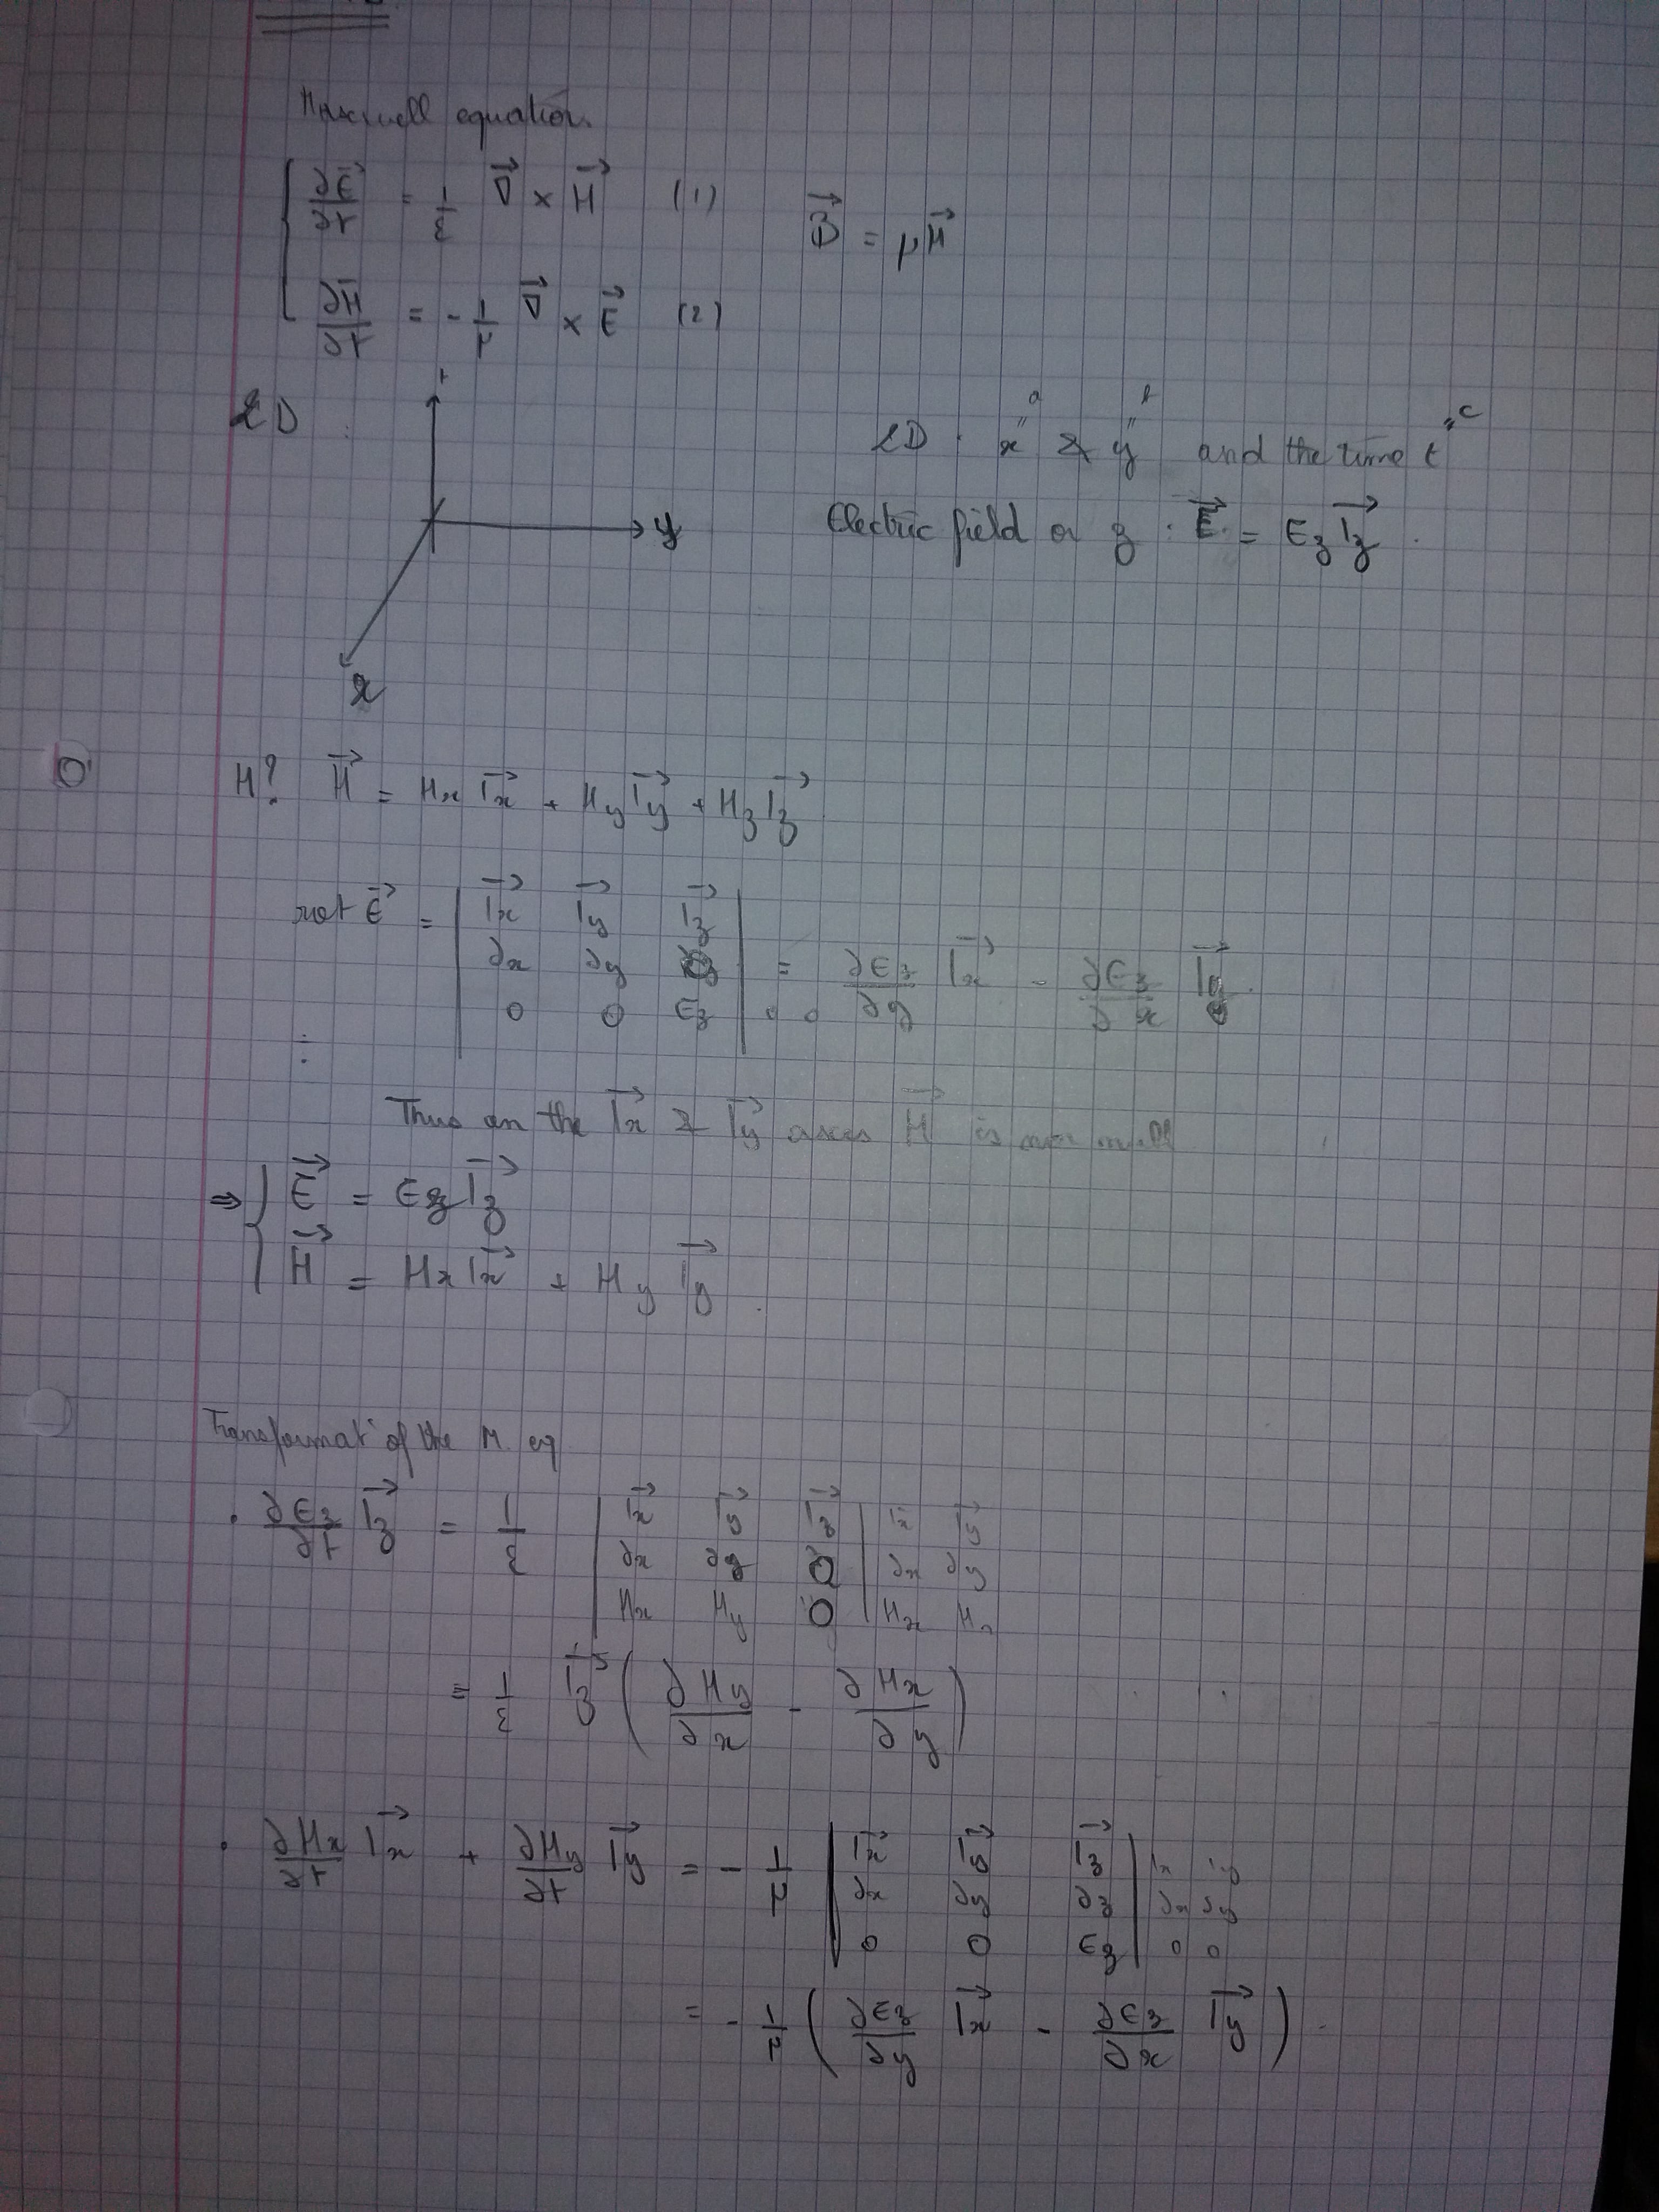 Maxwell equation.
∂E⃗/∂t = 1/ε ∇⃗ × H⃗ (1) B⃗ = μH⃗
∂H⃗/∂t = - 1/μ ∇⃗ × E⃗ (2)
2D : 2D : x "a" & y "b" and the time t "c"
y Electric field on z : E⃗ = Ez 1z⃗ .
x
H? H⃗ = Hx 1x⃗ + Hy 1y⃗ + Hz 1z⃗
rot E⃗ = | 1x⃗ 1y⃗ 1z⃗ |
| ∂x ∂y | = ∂Ez/∂y 1x⃗ - ∂Ez/∂x 1y⃗ .
| 0 0 Ez | 0 0
Thus on the 1x⃗ & 1y⃗ axes H⃗ is non null
⇒ { E⃗ = Ez 1z⃗
H⃗ = Hx 1x⃗ + Hy 1y⃗ .
Transformat° of the M. eq
• ∂Ez/∂t 1z⃗ = 1/ε | 1x⃗ 1y⃗ 1z⃗ | 1x⃗ 1y⃗
| ∂x ∂y 0 | ∂x ∂y
| Hx Hy 0 | Hx
= 1/ε 1z⃗ ( ∂Hy/∂x - ∂Hx/∂y )
• ∂Hx/∂t 1x⃗ + ∂Hy/∂t 1y⃗ = - 1/μ | 1x⃗ 1y⃗ 1z⃗ | 1x 1y
| ∂x ∂y ∂z | ∂x ∂y
| 0 0 Ez | 0 0
= - 1/μ ( ∂Ez/∂y 1x⃗ - ∂Ez/∂x 1y⃗ ) .